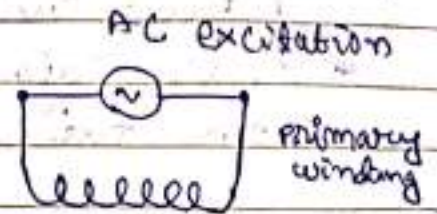 AC excitation
~
primary
winding